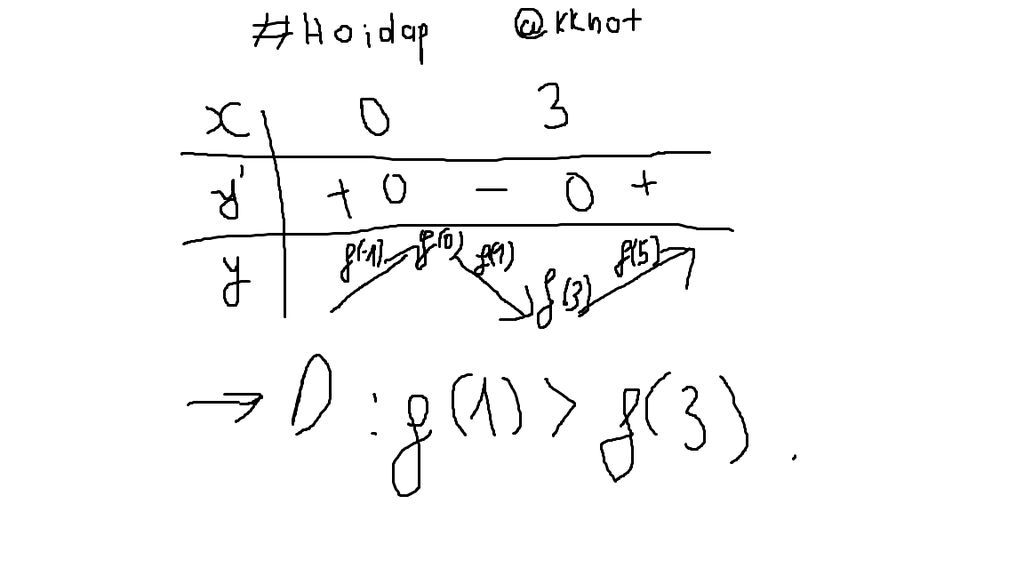 #Hoidap @kknot
x 0 3
y' + 0 - 0 +
y f(-1) f(0) f(1) f(3) f(5)
→ D : f(1) > f(3).